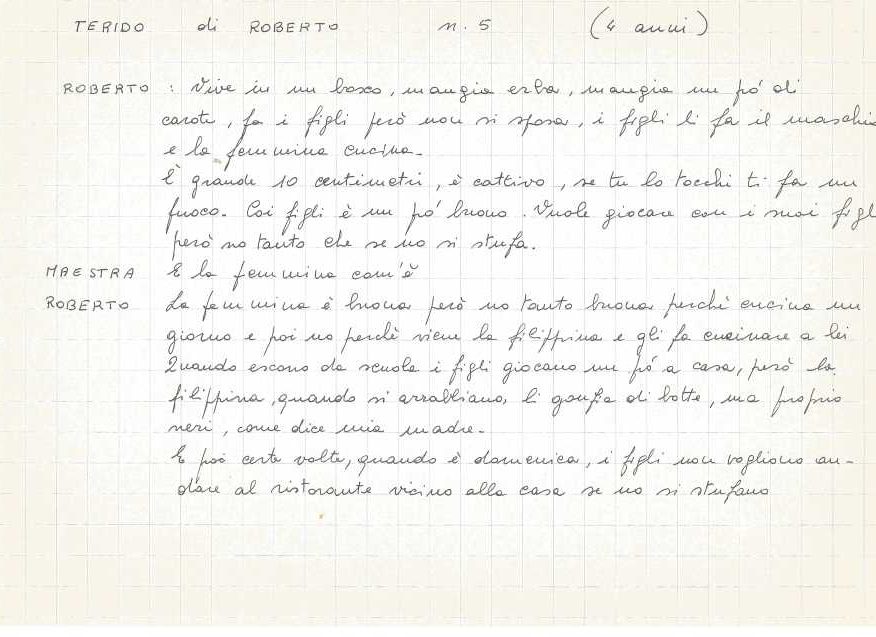 TERIDO di ROBERTO n. 5 (4 anni)
ROBERTO : Vive in un bosco, mangia erba, mangia un pó di
carote, fa i figli però non si sposa, i figli li fa il maschio
e la femmina cucina.
È grande 10 centimetri, è cattivo, se tu lo tocchi ti fa un
fuoco. Coi figli è un pó buono. Vuole giocare con i suoi figli
però no tanto che se no si stufa.
MAESTRA E la femmina com'è
ROBERTO La femmina è buona però no tanto buona perchè cucina un
giorno e poi no perchè viene la filippina e gli fa cucinare a lei
Quando escono da scuola i figli giocano un pó a casa, però la
filippina, quando si arrabbiano, li gonfia di botte, ma proprio
neri, come dice mia madre.
E poi certe volte, quando è domenica, i figli non vogliono an-
dare al ristorante vicino alla casa se no si stufano